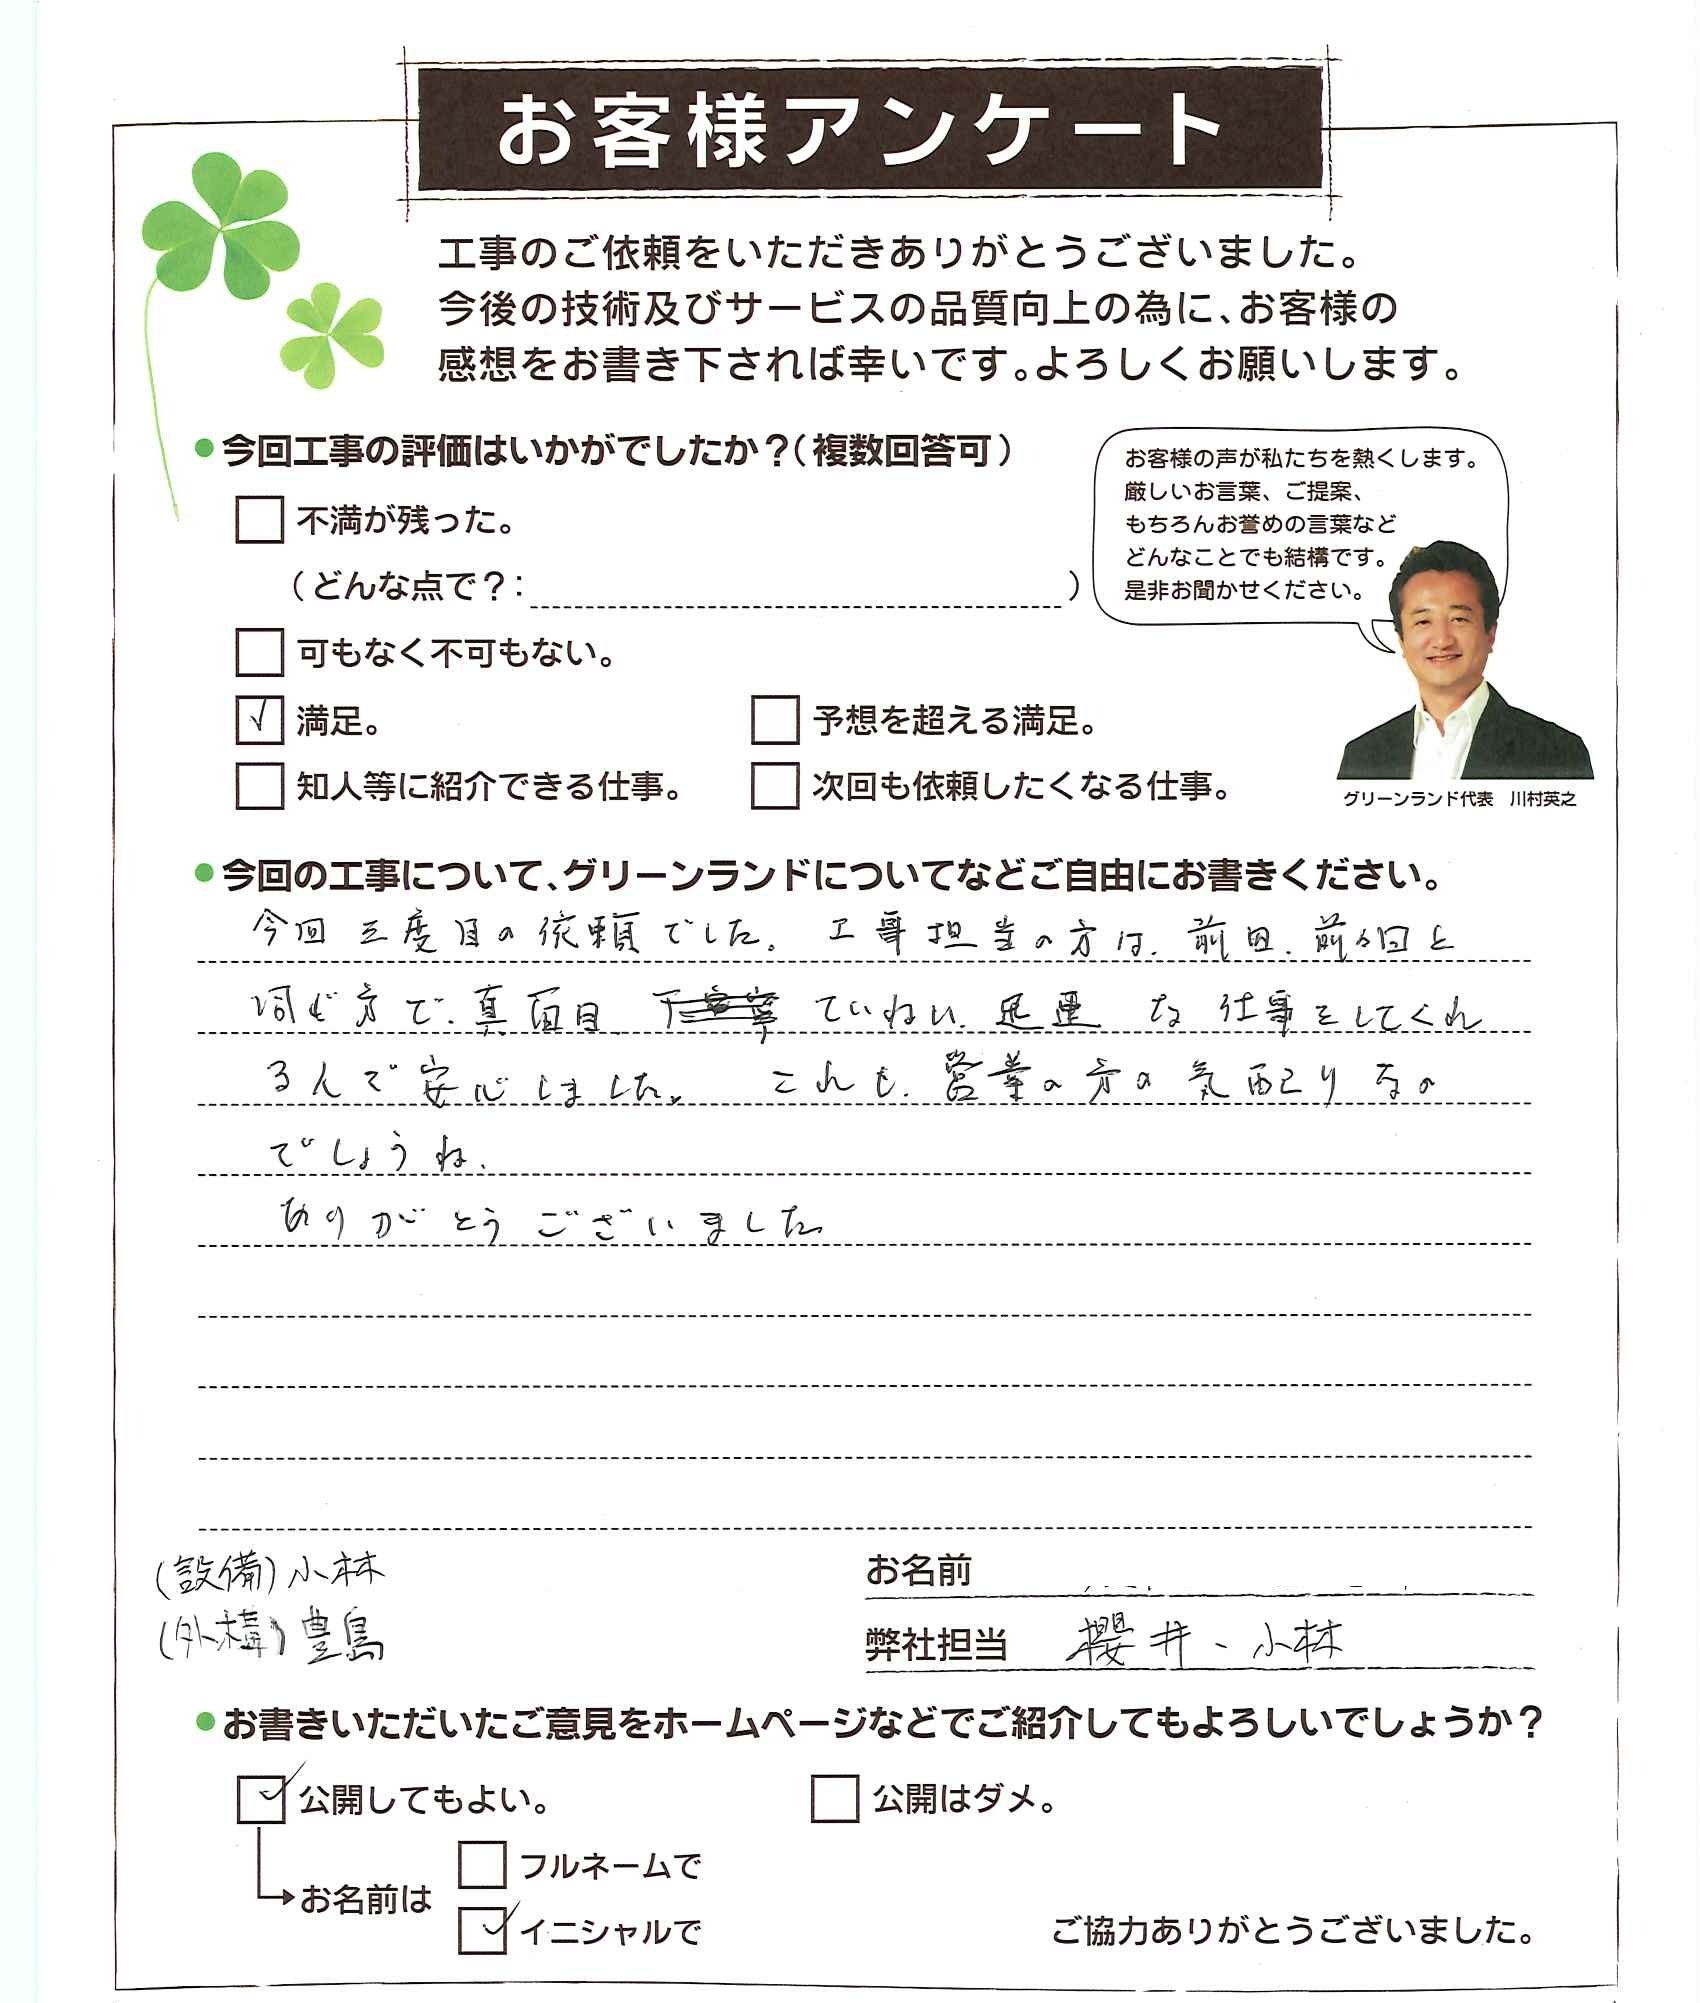 お客様アンケート
工事のご依頼をいただきありがとうございました。
今後の技術及びサービスの品質向上の為に、お客様の
感想をお書き下されば幸いです。よろしくお願いします。
●今回工事の評価はいかがでしたか？（複数回答可）
不満が残った。
（どんな点で？：　）
可もなく不可もない。
満足。
予想を超える満足。
知人等に紹介できる仕事。
次回も依頼したくなる仕事。
お客様の声が私たちを熱くします。
厳しいお言葉、ご提案、
もちろんお誉めの言葉など
どんなことでも結構です。
是非お聞かせください。
グリーンランド代表　川村英之
●今回の工事について、グリーンランドについてなどご自由にお書きください。
今回 三度目の依頼でした。 工事担当の方は、前回、前々回と
同じ方で、真面目、ていねい、迅速 な 仕事をしてくれ
るんで安心しました。 これも、営業の方の気配りなの
でしょうね、
ありがとうございました
(設備)小林
(外構)豊島
お名前
弊社担当　櫻井、小林
●お書きいただいたご意見をホームページなどでご紹介してもよろしいでしょうか？
公開してもよい。
公開はダメ。
お名前は
フルネームで
イニシャルで
ご協力ありがとうございました。